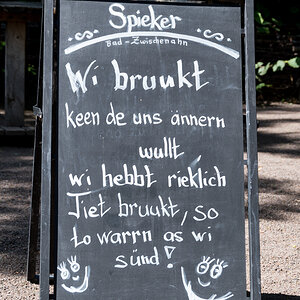 Spieker
Bad-Zwischenahn
Wi bruukt
keen de uns ännern
wullt
wi hebbt rieklich
Tiet bruukt, so
to warrn as wi
sünd!